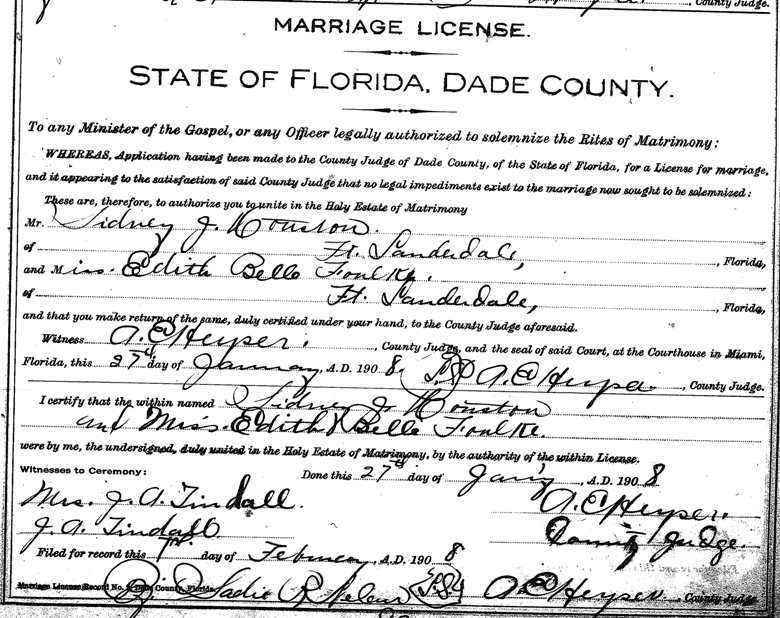 , County Judge.
MARRIAGE LICENSE.
STATE OF FLORIDA, DADE COUNTY.
To any Minister of the Gospel, or any Officer legally authorized to solemnize the Rites of Matrimony:
WHEREAS, Application having been made to the County Judge of Dade County, of the State of Florida, for a License for marriage,
and it appearing to the satisfaction of said County Judge that no legal impediments exist to the marriage now sought to be solemnized:
These are, therefore, to authorize you to unite in the Holy Estate of Matrimony
Mr. Sidney J. Houston.
of Ft. Lauderdale, , Florida,
and Miss. Edith Belle Foulke.
of Ft. Lauderdale, , Florida,
and that you make return of the same, duly certified under your hand, to the County Judge aforesaid.
Witness A. E. Heyser. , County Judge, and the seal of said Court, at the Courthouse in Miami,
Florida, this 27th day of January, A.D. 1908. A. E. Heyser , County Judge.
I certify that the within named Sidney J. Houston
and Miss. Edith Belle Foulke.
were by me, the undersigned, duly united in the Holy Estate of Matrimony, by the authority of the within License.
Witnesses to Ceremony: Done this 27th day of Jan'y A.D. 1908
Mrs. J. A. Tindall. A. E. Heyser.
J. A. Tindall County Judge.
Filed for record this 7th day of February, A.D. 1908
Marriage License Record No. Dade County, Florida By Sadie R. A. E. Heyser , County Judge.